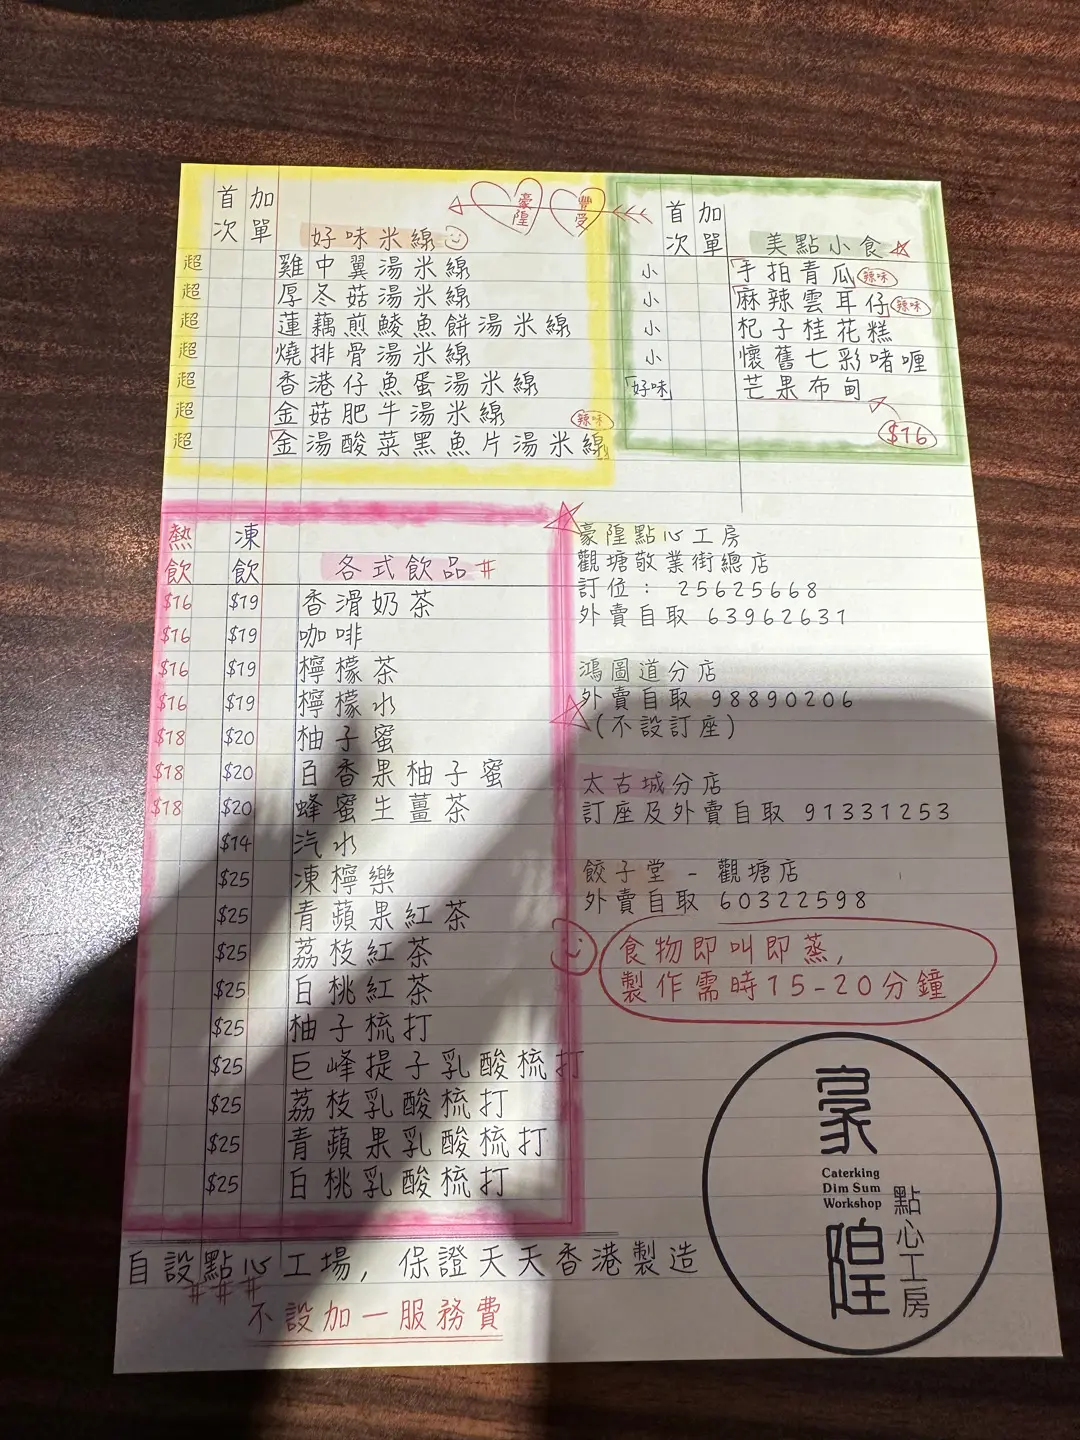 首次 加單 好味米線
豪隍 豐受
超 雞中翼湯米線
超 厚冬菇湯米線
超 蓮藕煎鯪魚餅湯米線
超 燒排骨湯米線
超 香港仔魚蛋湯米線
超 金菇肥牛湯米線
超 金湯酸菜黑魚片湯米線 辣味
首次 加單 美點小食
小 手拍青瓜 辣味
小 麻辣雲耳仔 辣味
小 杞子桂花糕
小 懷舊七彩啫喱
「好味」 芒果布甸
$16
熱飲 凍飲 各式飲品#
$16 $19 香滑奶茶
$16 $19 咖啡
$16 $19 檸檬茶
$16 $19 檸檬水
$18 $20 柚子蜜
$18 $20 百香果柚子蜜
$18 $20 蜂蜜生薑茶
$14 汽水
$25 凍檸樂
$25 青蘋果紅茶
$25 荔枝紅茶
$25 白桃紅茶
$25 柚子梳打
$25 巨峰提子乳酸梳打
$25 荔枝乳酸梳打
$25 青蘋果乳酸梳打
$25 白桃乳酸梳打
豪隍點心工房
觀塘敬業街總店
訂位: 25625668
外賣自取 63962631
鴻圖道分店
外賣自取 98890206
(不設訂座)
太古城分店
訂座及外賣自取 91331253
餃子堂 - 觀塘店
外賣自取 60322598
食物即叫即蒸,
製作需時15-20分鐘
豪隍
Caterking
Dim Sum
Workshop
點心工房
自設點心工場, 保證天天香港製造
###
不設加一服務費